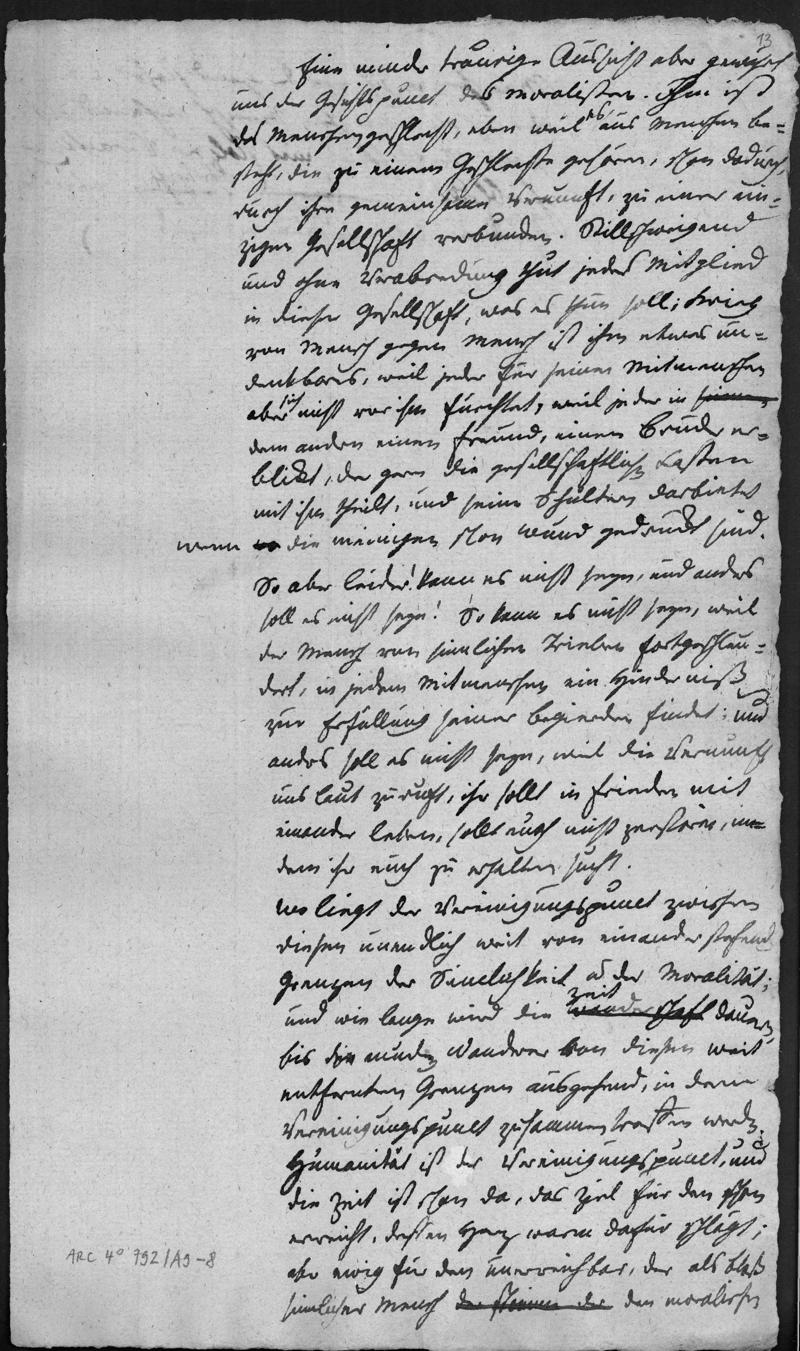 13
Eine minder traurige Aussicht aber gewährt
uns der Gesichtspunct des Moralisten. Ihm ist
das Menschengeschlecht, eben weil es aus Menschen be-
steht, die zu einem Geschlechte gehören, schon dadurch,
durch ihre gemeinsame Vernunft, zu einer ein-
zigen Gesellschaft verbunden. Stillschweigend
und ohne Verabredung thut jedes Mitglied
in dieser Gesellschaft, was es thun soll; Krieg
von Mensch gegen Mensch ist ihm etwas un-
denkbares, weil jeder für seinen Mitmenschen
aber sich nicht vor ihm fürchtet, weil jeder in
dem andern einen Freund, einen Bruder er-
blikt, der gern die gesellschaftlichen Lasten
mit ihm theilt, und seine Schultern darbietet
wenn die meinigen schon wund gedrückt sind.
So aber leider! kann es nicht seyn, und anders
soll es nicht seyn! So kann es nicht seyn, weil
der Mensch von sinnlichen Trieben fortgeschleu-
dert, in jedem Mitmenschen ein Hinderniß
zur Erfüllung seiner Begierden findet; und
anders soll es nicht seyn, weil die Vernunft
uns laut zuruft, ihr sollt in Frieden mit
einander leben, sollt euch nicht zerstören, in-
dem ihr euch zu erhalten sucht.
Wo liegt der Vereinigungspunct zwischen
diesen unendlich weit von einander stehenden
Grenzen der Sinnlichkeit u der Moralität;
und wie lange wird die Zeit dauern,
bis die müden Wandrer von diesen weit
entfernten Grenzen ausgehend, in dem
Vereinigungspunct zusammentreffen werden.
Humanität ist der Vereinigungspunct, und
die Zeit ist schon da, das Ziel für den schon
erreicht, dessen Herz warm dafür schlägt;
aber ewig für den unerreichbar, der als bloß
sinnlicher Mensch den moralischen
ARC 4° 792/A9-8